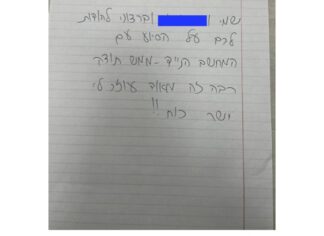 שמי וברצוני להודות
לכם על הסיוע עם
המחשב הנייד - ממש תודה
רבה זה מאוד עוזר לי
!!
יישר כוח